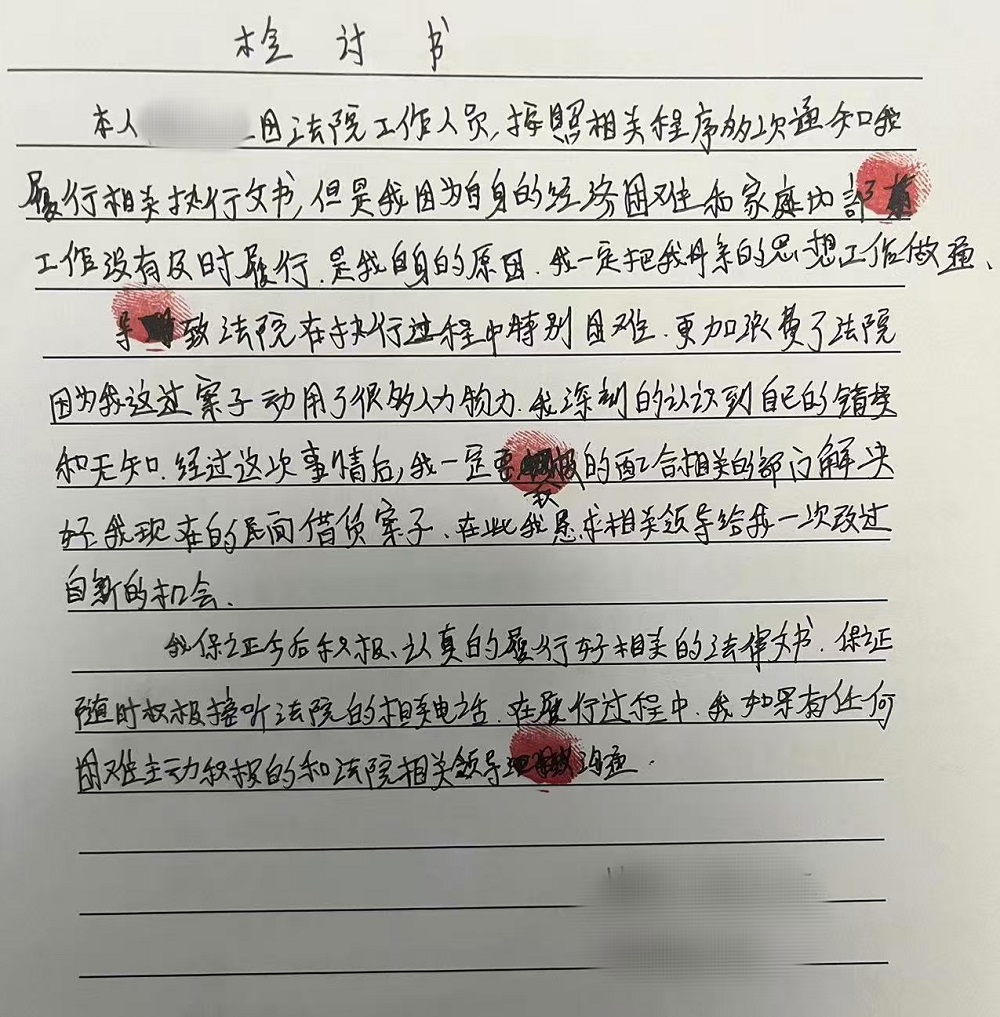 检讨书
本人 因法院工作人员,按照相关程序多次通知我
履行相关执行文书,但是我因为自身的经济困难和家庭内部
工作没有及时履行.是我自身的原因.我一定把我母亲的思想工作做通、
导致法院在执行过程中特别困难.更加浪费了法院
因为我这过案子动用了很多人力物力.我深刻的认识到自己的错误
和无知.经过这次事情后,我一定要积极的配合相关的部门解决
好我现在的民间借贷案子.在此我恳求相关领导给我一次改过
自新的机会.
我保证今后积极、认真的履行好相关的法律文书.保证
随时积极接听法院的相关电话.在履行过程中.我如果有任何
困难主动积极的和法院相关领导沟通.